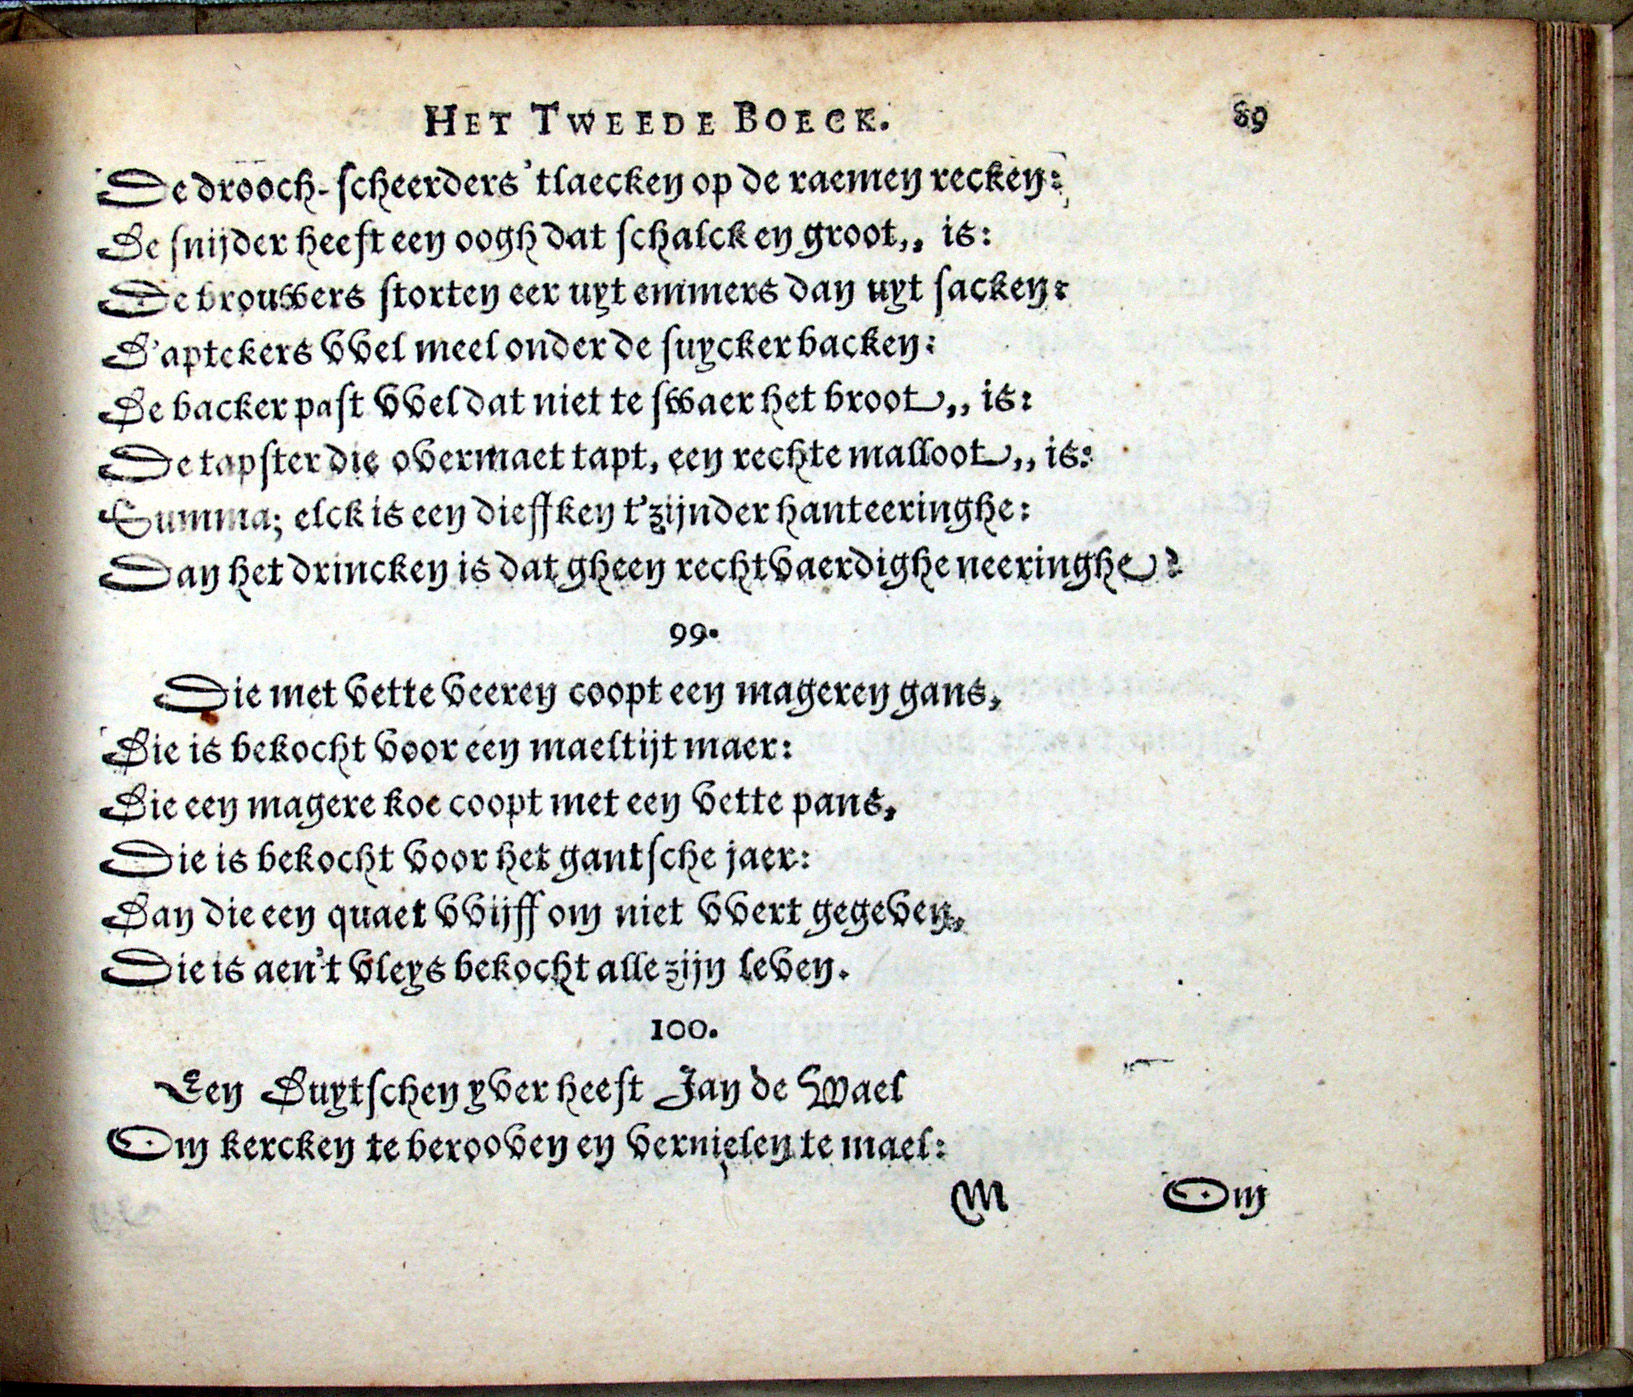 HET TWEEDE BOECK. 89
De drooch-scheerders 'tlaecken op de raemen recken:
De snijder heeft een oogh dat schalck en groot,, is:
De brouwers storten eer uyt emmers dan uyt sacken:
D'aptekers vvel meel onder de suycker backen:
De backer past vvel dat niet te swaer het broot,, is:
De tapster die overmaet tapt, een rechte malloot,, is:
Summa; elck is een dieffken t'zijnder hanteeringhe:
Dan het drincken is dat gheen rechtvaerdighe neeringhe?
99.
Die met vette veeren coopt een mageren gans,
Die is bekocht voor een maeltijt maer:
Die een magere koe coopt met een vette pans,
Die is bekocht voor het gantsche jaer:
Dan die een quaet vvijff om niet vvert gegeven,
Die is aen't vleys bekocht alle zijn leven.
100.
Een Duytschen yver heeft Jan de Wael
Om kercken te berooven en vernielen te mael:
M Om